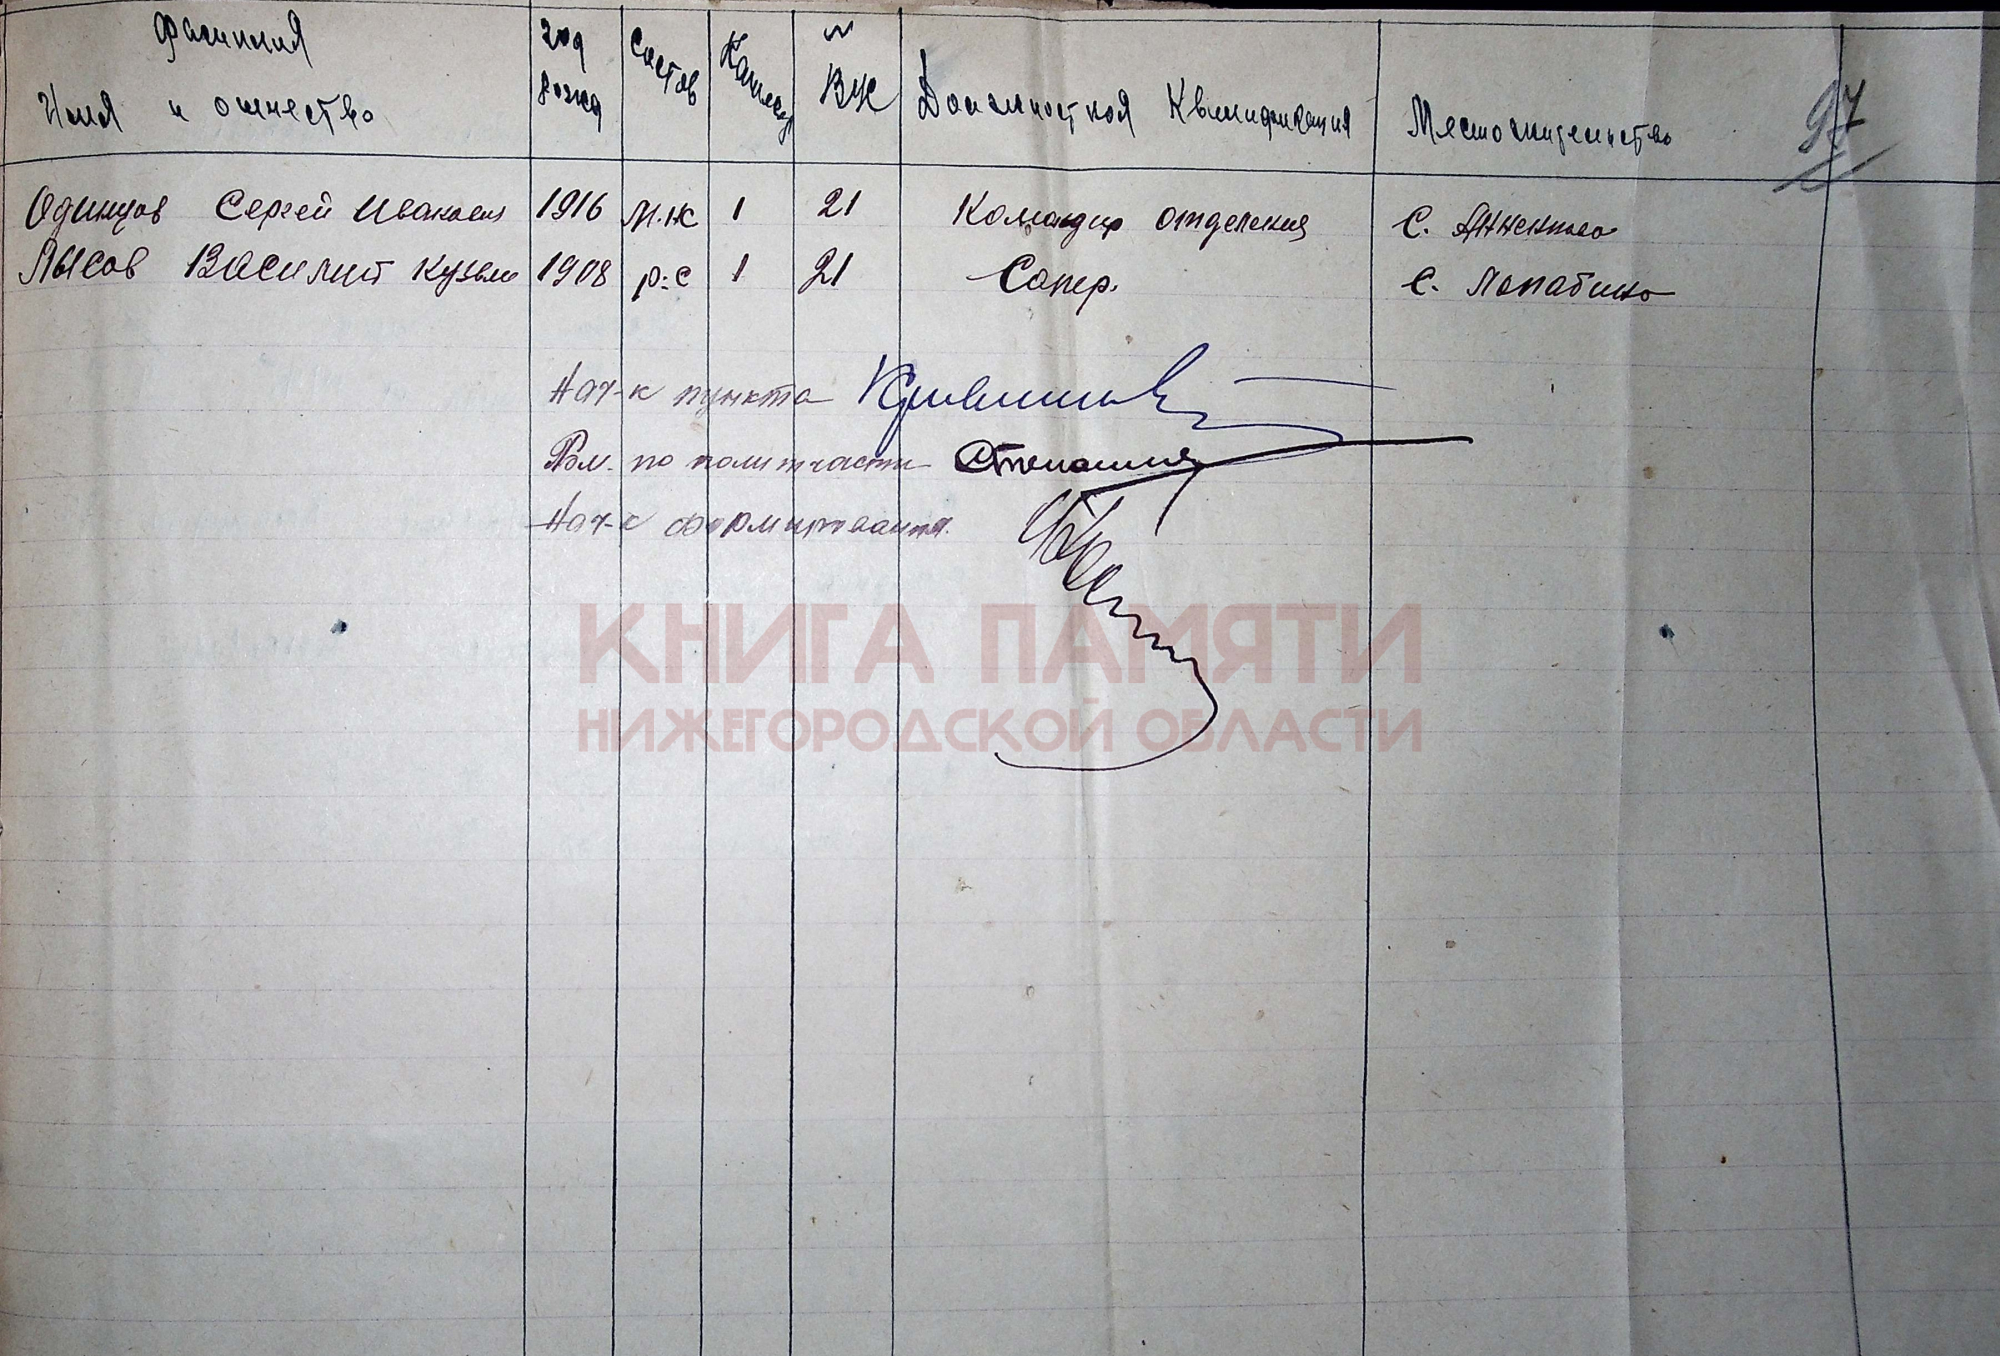 Фамилия
Имя и отчество
год рожд
Состав
Категор
№ ВУС
Должностная Квалификация
Местожительство
97
Одинцов Сергей Иванович 1916 М.Н.К 1 21 Командир отделения С. Анненково
Лысов Василий Кузьм 1908 р.с 1 21 Сапер. С. Лопатино
Нач-к пункта
Зам. по политчасти Степашин
Нач-к формирования.
КНИГА ПАМЯТИ
НИЖЕГОРОДСКОЙ ОБЛАСТИ